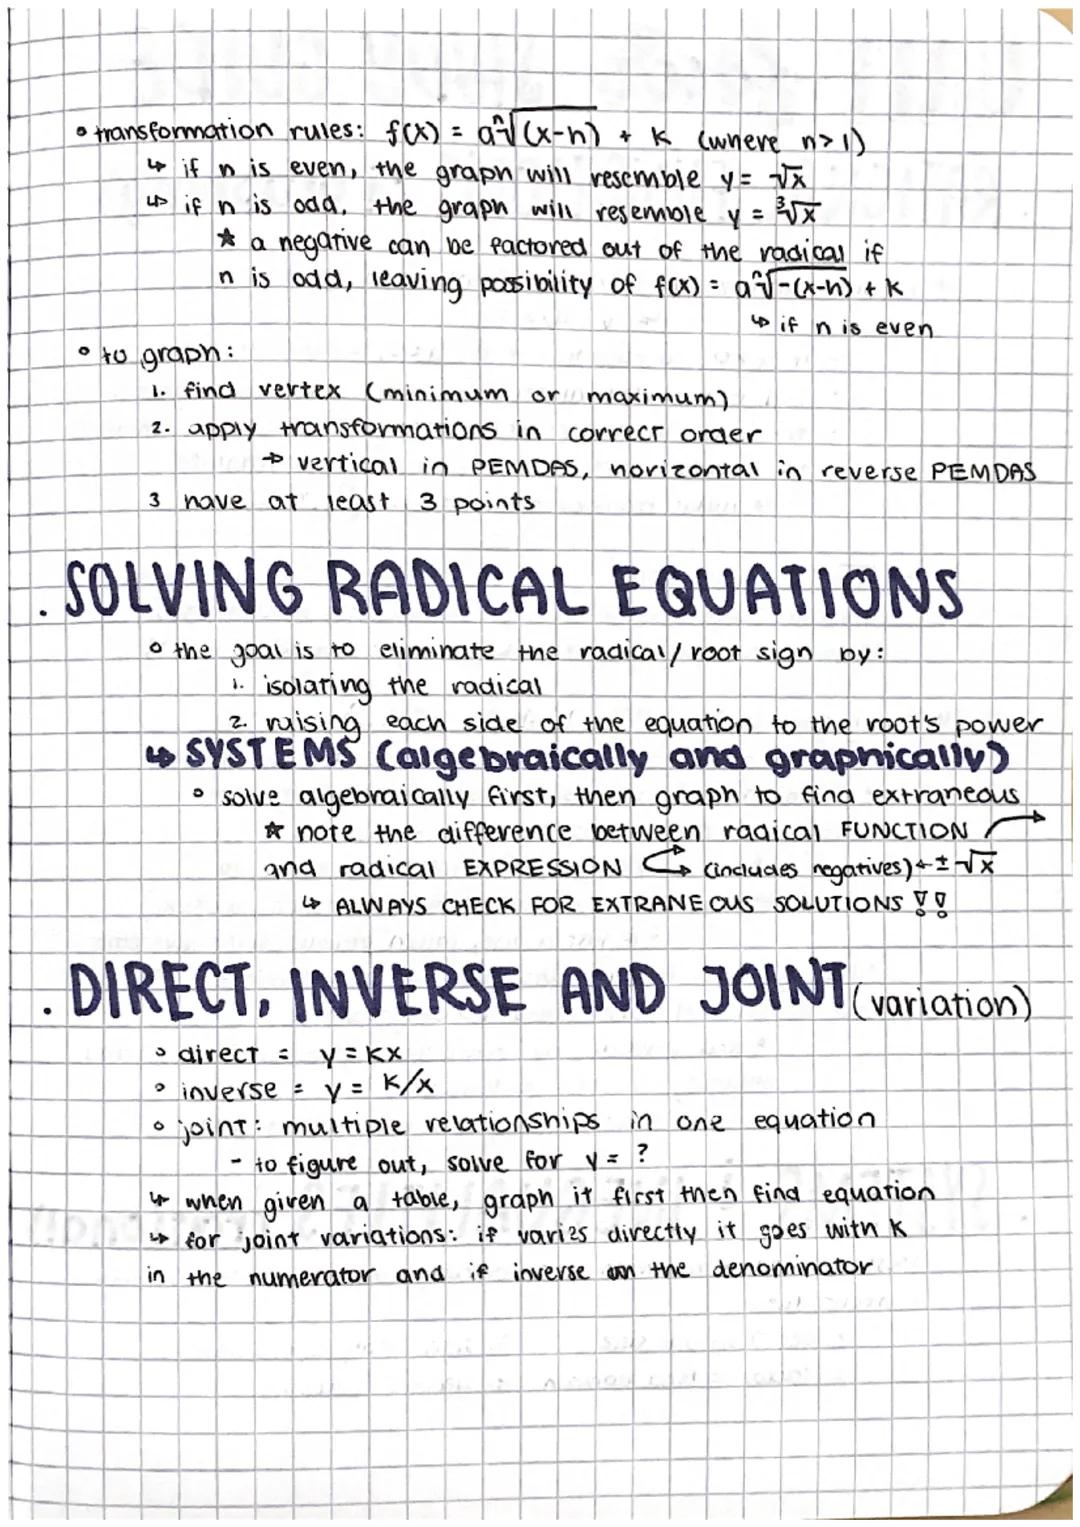 • transformation rules: f(x) = aⁿ√(x-h) + k (where n>1)
↳ if n is even, the graph will resemble y = √x
↳ if n is odd, the graph will resemble y = ³√x
* a negative can be factored out of the radical if
n is odd, leaving possibility of f(x) = aⁿ√-(x-h) + k
↳ if n is even
• to graph:
1. find vertex (minimum or maximum)
2. apply transformations in correct order
→ vertical in PEMDAS, horizontal in reverse PEMDAS
3 have at least 3 points
. SOLVING RADICAL EQUATIONS
• the goal is to eliminate the radical/root sign by:
1. isolating the radical
2. raising each side of the equation to the root's power
↳ SYSTEMS (algebraically and graphically)
• solve algebraically first, then graph to find extraneous
* note the difference between radical FUNCTION
and radical EXPRESSION (includes negatives) ← ± √x
↳ ALWAYS CHECK FOR EXTRANEOUS SOLUTIONS !!
. DIRECT, INVERSE AND JOINT (variation)
• direct = y = kx
• inverse = y = k/x
• joint: multiple relationships in one equation
- to figure out, solve for y = ?
↳ when given a table, graph it first then find equation
↳ for joint variations: if varies directly it goes with k
in the numerator and if inverse on the denominator